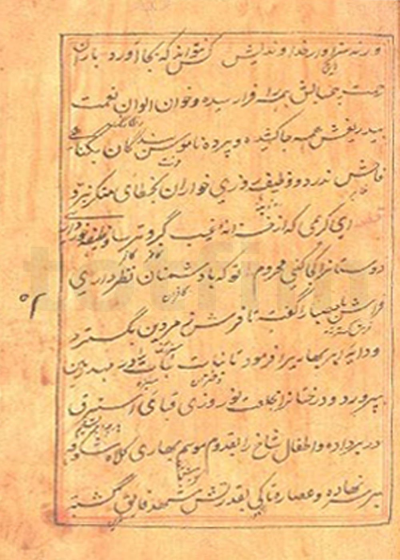 ورنه سزاوار خداوندیش کس نتواند که بجا آورد باران
رحمت بیحسابش همه را رسیده و خوان الوان نعمت
بیدریغش همه جا کشیده و پرده ناموس بندگان بگناه
فاحش ندرد و وظیفه روزی خواران بخطای منکر نبرد
ای کریمی که از خزانه غیب گبر و ترسا وظیفه خور داری
دوستانرا کجا کنی محروم تو که با دشمنان نظر داری
فراش باد صبا را گفته تا فرش زمردین بگسترد
و دایه ابر بهاریرا فرمود تا بنات نبات را در مهد زمین
بپرورد و درختانرا بخلعت نوروزی قبای استبرق
در بر داده و اطفال شاخ را بقدوم موسم بهاری کلاه شکوفه
بر سر نهاده و عصاره تاکی بقدرتش شهد فایق گشته